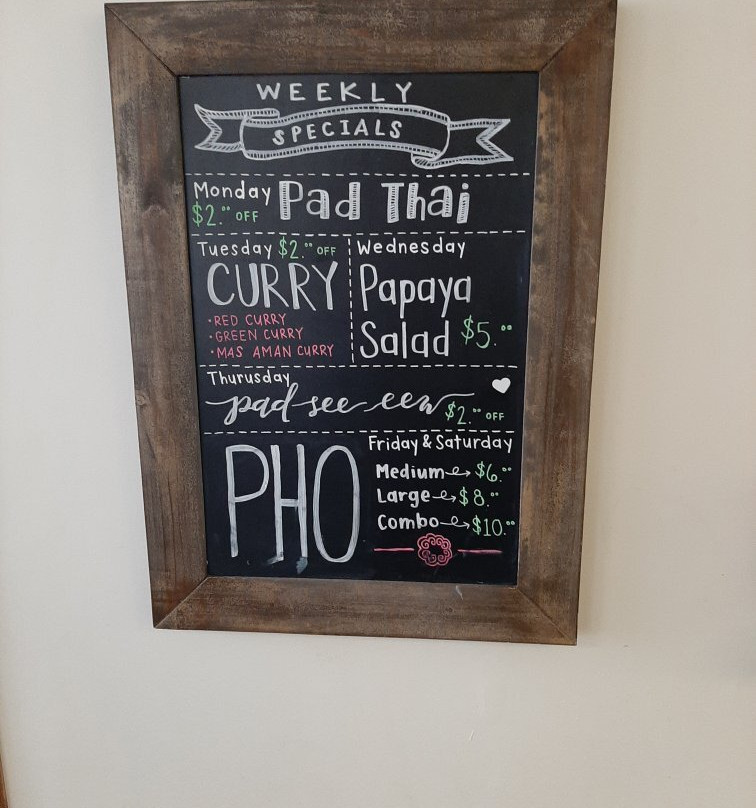 WEEKLY
SPECIALS
Monday Pad Thai
$2.00 OFF
Tuesday $2.00 OFF
CURRY
•RED CURRY
•GREEN CURRY
•MAS AMAN CURRY
Wednesday
Papaya
Salad $5.00
Thurusday
pad see eew $2.00 OFF
PHO
Friday & Saturday
Medium $6.00
Large $8.00
Combo $10.00